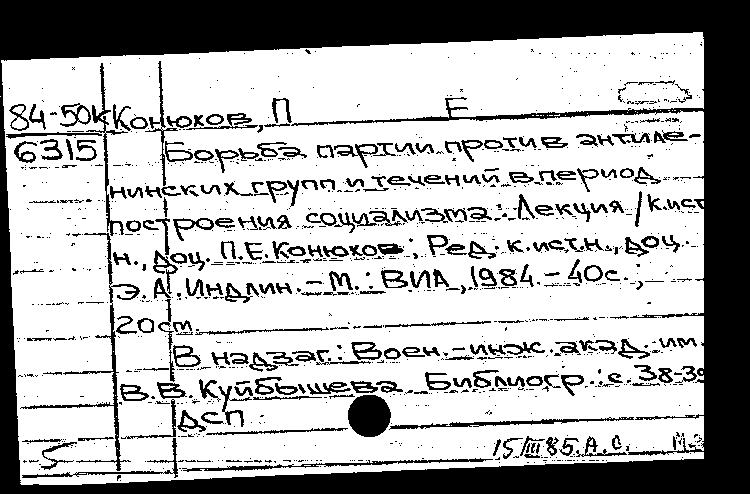 84-50к Конюхов, П Е
6315 Борьба партии против антиле-
нинских групп и течений в период
построения социализма: Лекция / К.ист
н., доц. П.Е.Конюхов; Ред. к.ист.н., доц.
Э.А.Индлин. - М.: ВИА, 1984. - 40с.;
20 см.
В надзаг.: Воен.-инж. акад. им.
В.В.Куйбышева. Библиогр.: с. 38-39
ДСП
5 15/III 85. А.С.